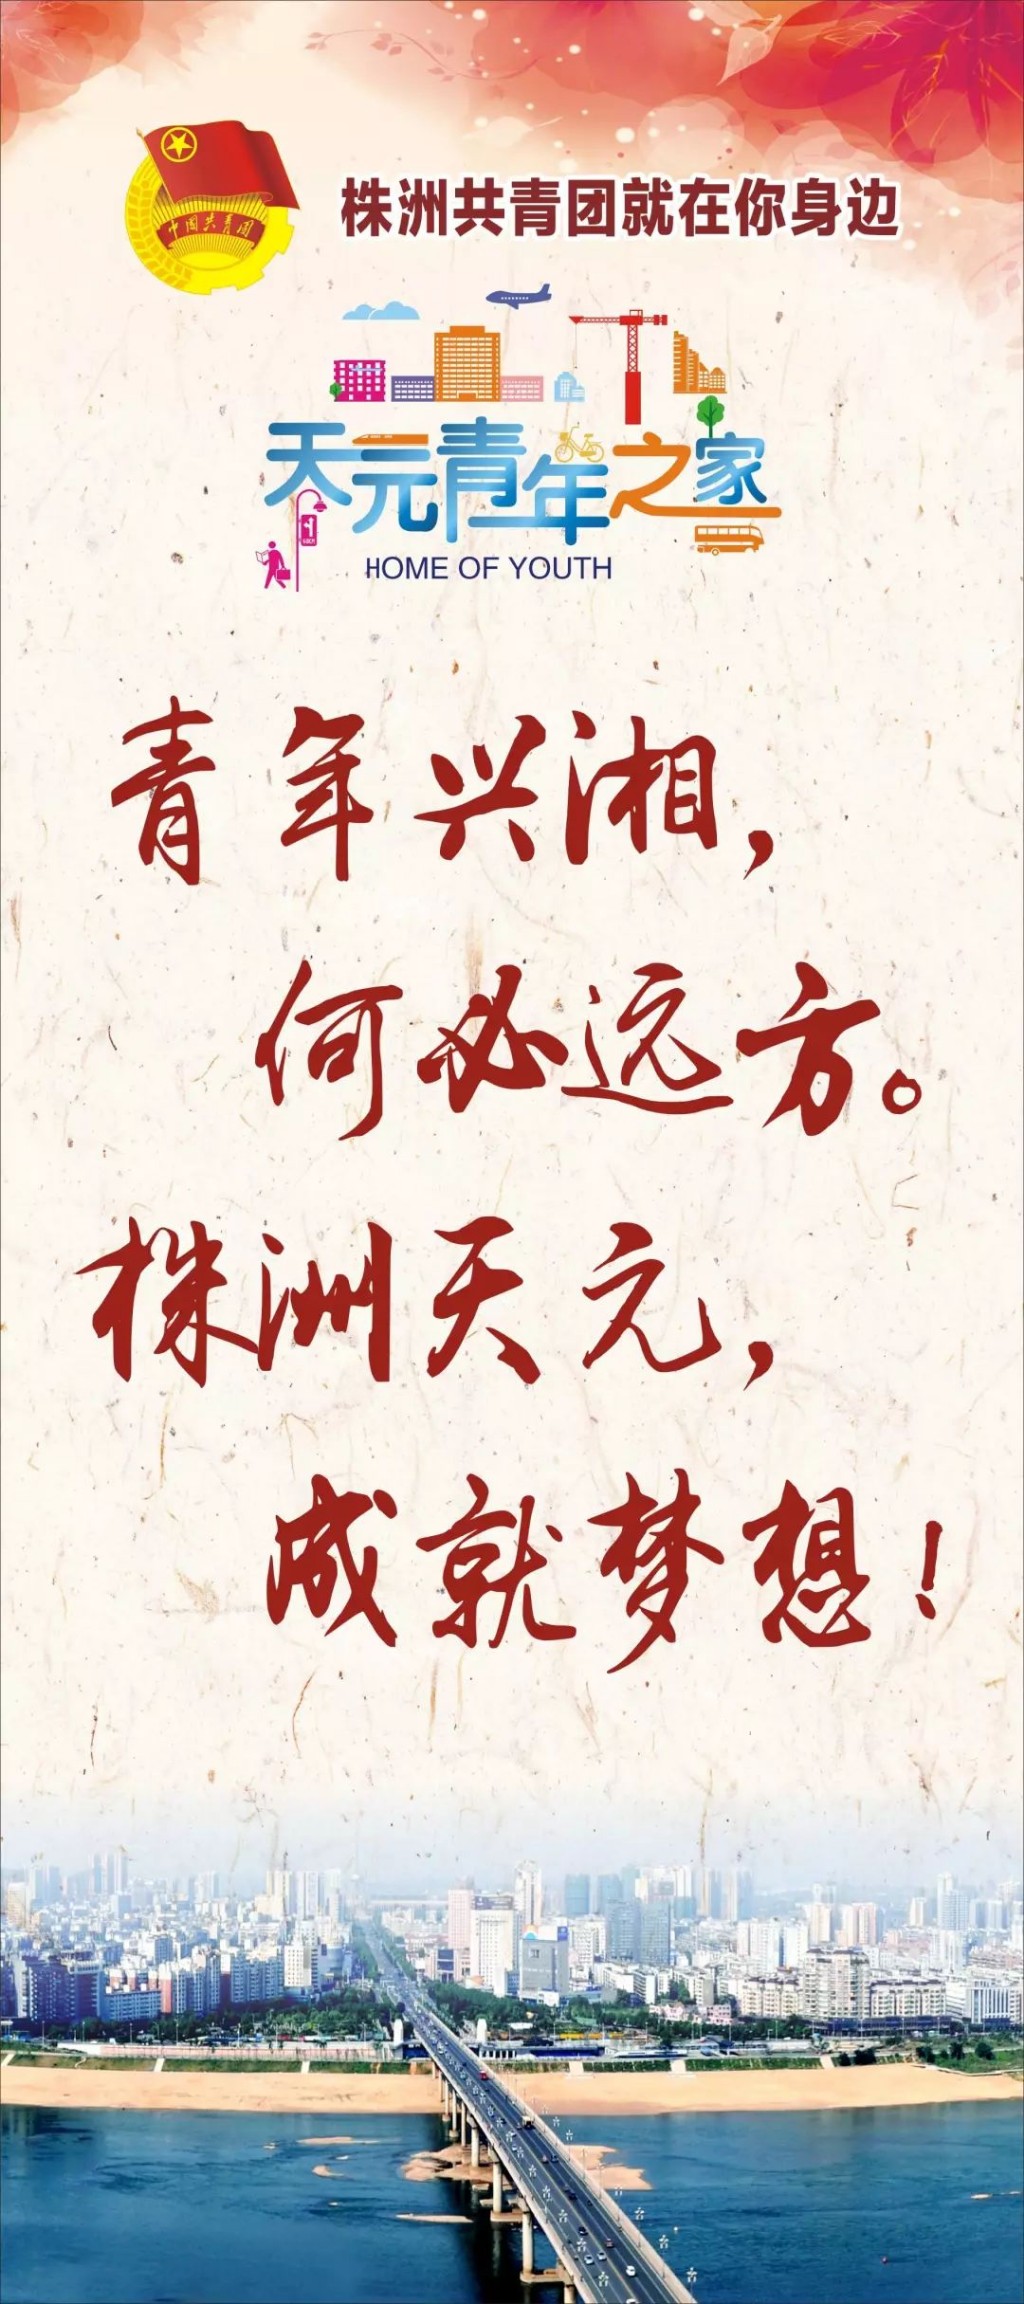 中国共青团
株洲共青团就在你身边
天元青年之家
HOME OF YOUTH
青年兴湘，
何必远方。
株洲天元，
成就梦想！